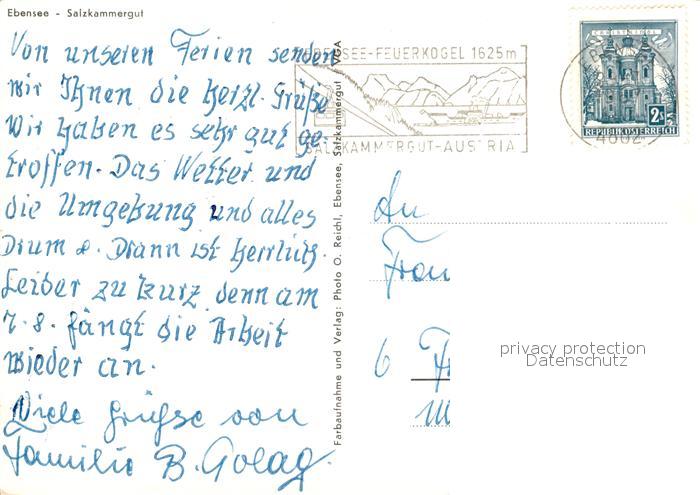 Ebensee - Salzkammergut
Von unseren Ferien senden
wir Ihnen die herzl. Grüße
Wir haben es sehr gut ge-
troffen. Das Wetter und
die Umgebung und alles
Drum & Drann ist herrlich.
Leider zu kurz denn am
7.8. fängt die Arbeit
wieder an.
Viele Grüße von
Familie B. Golag.
Farbaufnahme und Verlag: Photo O. Reichl, Ebensee, Salzkammergut VGA
EBENSEE-FEUERKOGEL 1625m
SALZKAMMERGUT-AUSTRIA
CHRISTKINDL
2S
REPUBLIK ÖSTERREICH
4802
An
Frau
6
privacy protection
Datenschutz